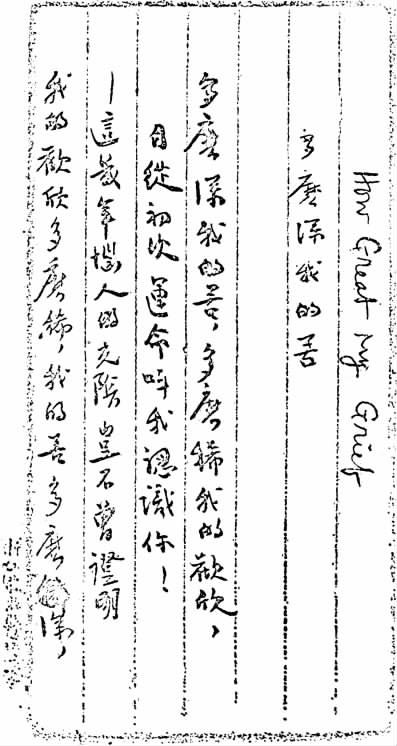 How Great My Grief
多麼深我的苦
多麼深我的苦，多麼稀我的歡欣，
自從初次運命叫我認識你！
—這幾年惱人的光陰豈不曾證明
我的歡欣多麼稀，我的苦多麼深，